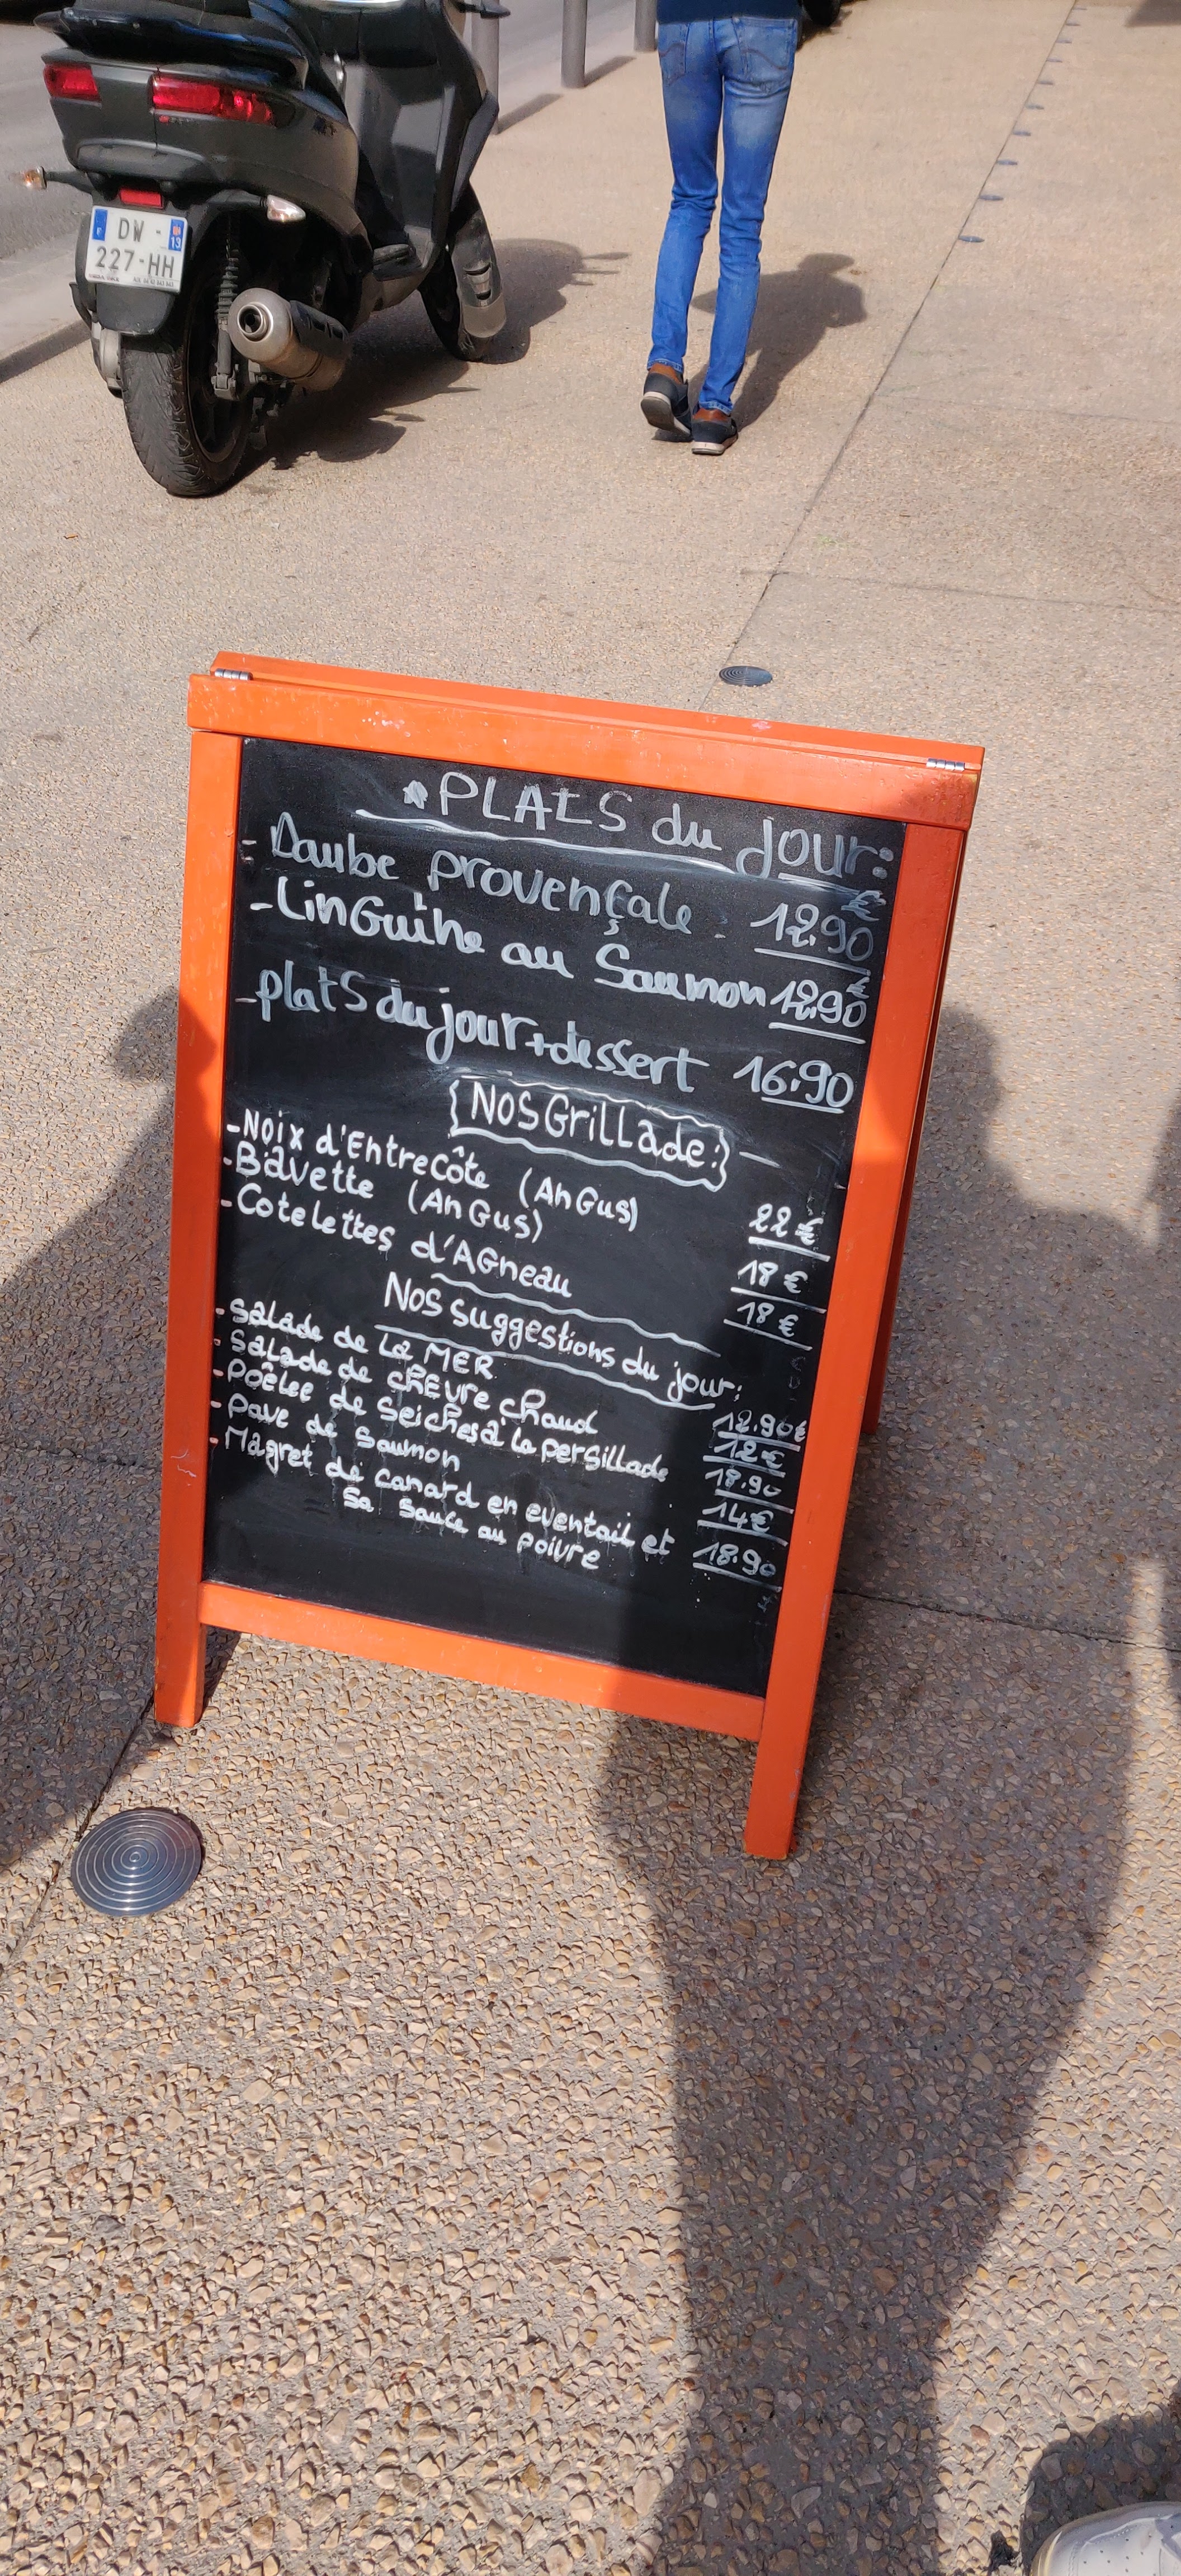 DW -
13
F
227-HH
PLATS du jour:
- Daube provençale : 12.90 €
- LinGuine au Saumon 12.90 €
- plats du jour + dessert 16.90
Nos Grillade:
- Noix d'EntreCôte (AnGus) 22 €
- Bavette (AnGus) 18 €
- Cotelettes d'AGneau 18 €
Nos suggestions du jour:
- Salade de La MER 12.90€
- Salade de chEvre chaud 12 €
- Poêlee de Seiches à la persillade 18.90
- Pave de Saumon 14€
- Magret de Canard en eventail et 18.90
Sa Sauce au poivre